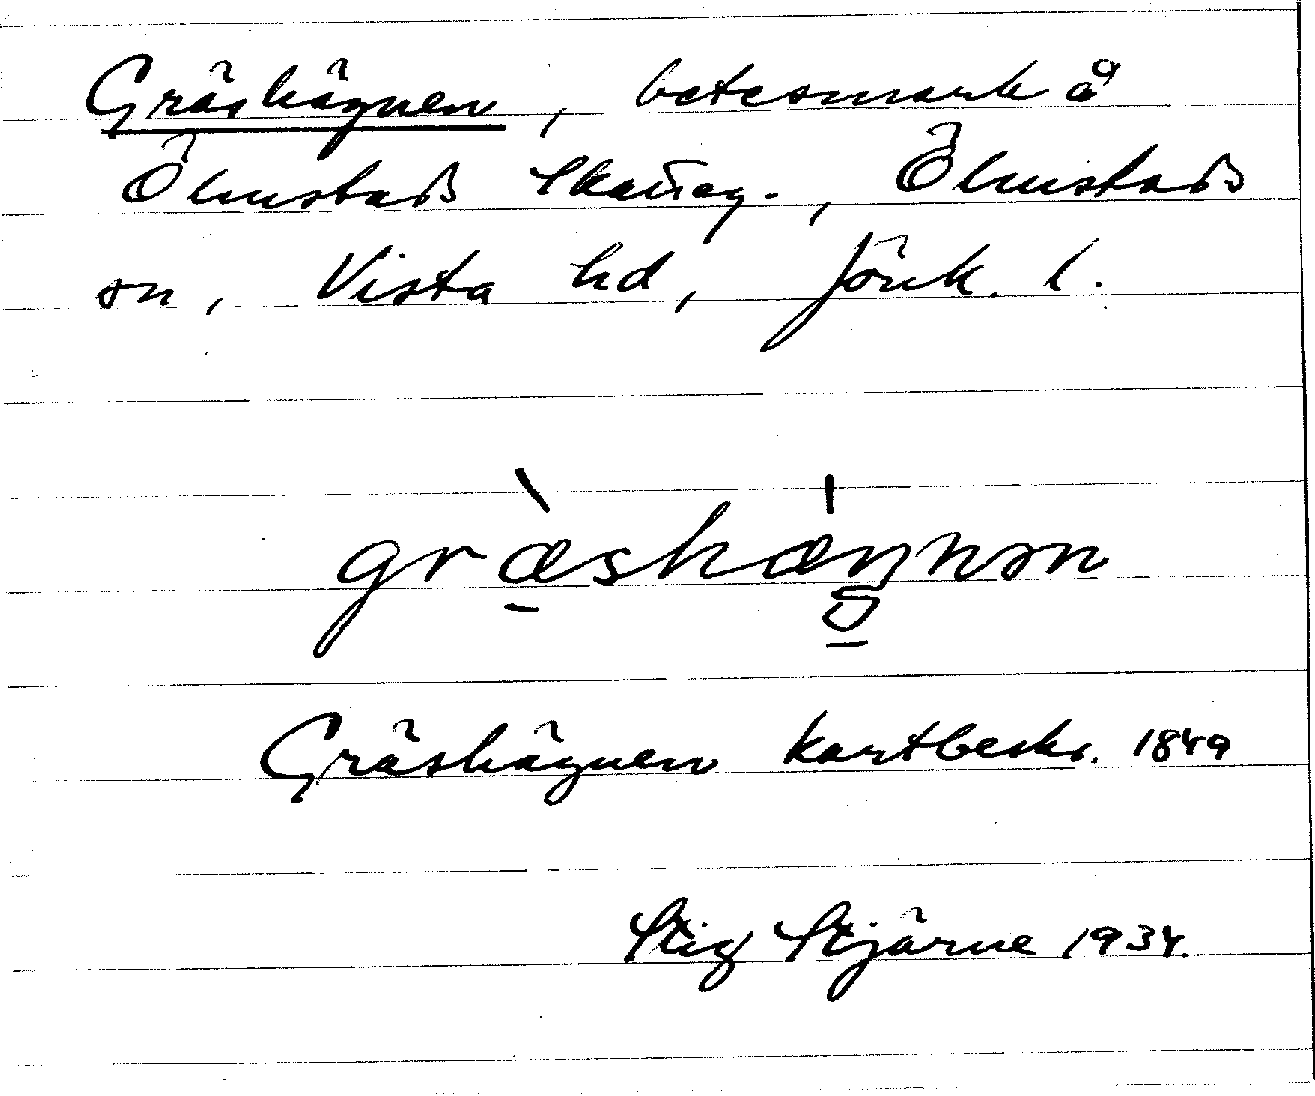 Gräshägnen, betesmark å
Ölmstads Skatteg., Ölmstads
sn, Vista hd, Jönk. l.
græ̀shǽŋnən
Gräshägnen kartbeskr. 1849
Stig Stjärne 1934.